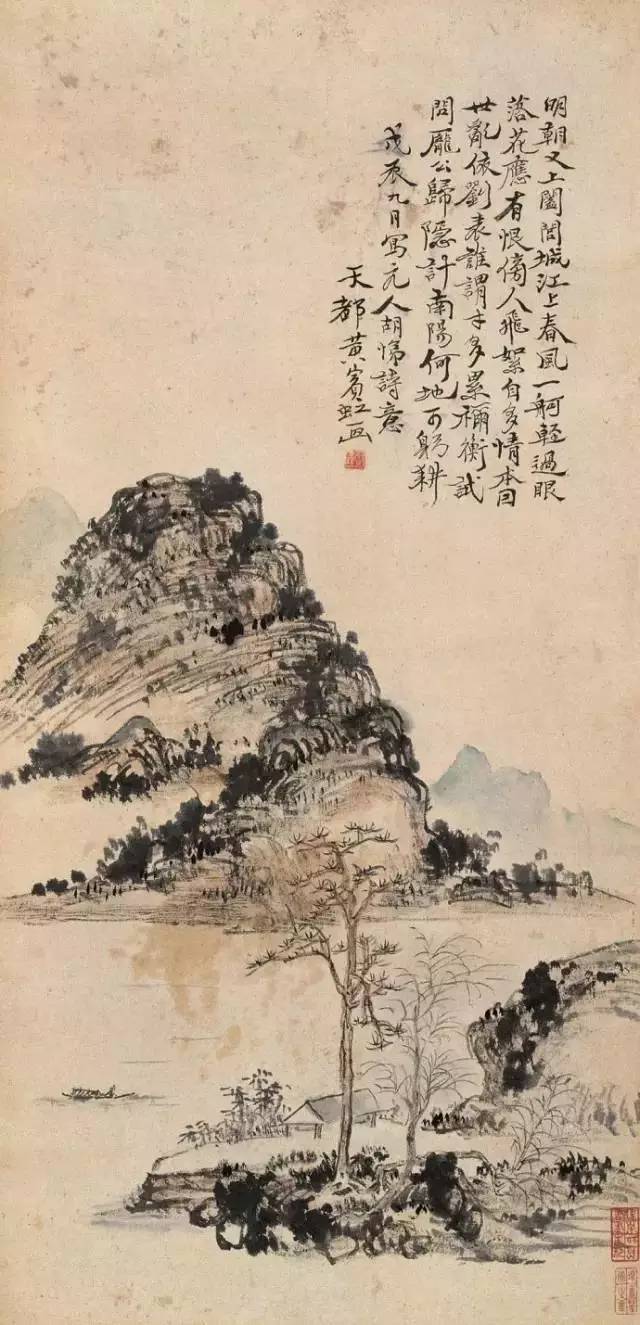 明朝又上闔閭城江上春風一舸輕過眼
落花應有恨傍人飛絮自多情本因
世亂依劉表誰謂才多累禰衡試
問龐公歸隱計南陽何地可躬耕
戊辰九月寫元人胡悌詩意
天都黃賓虹画